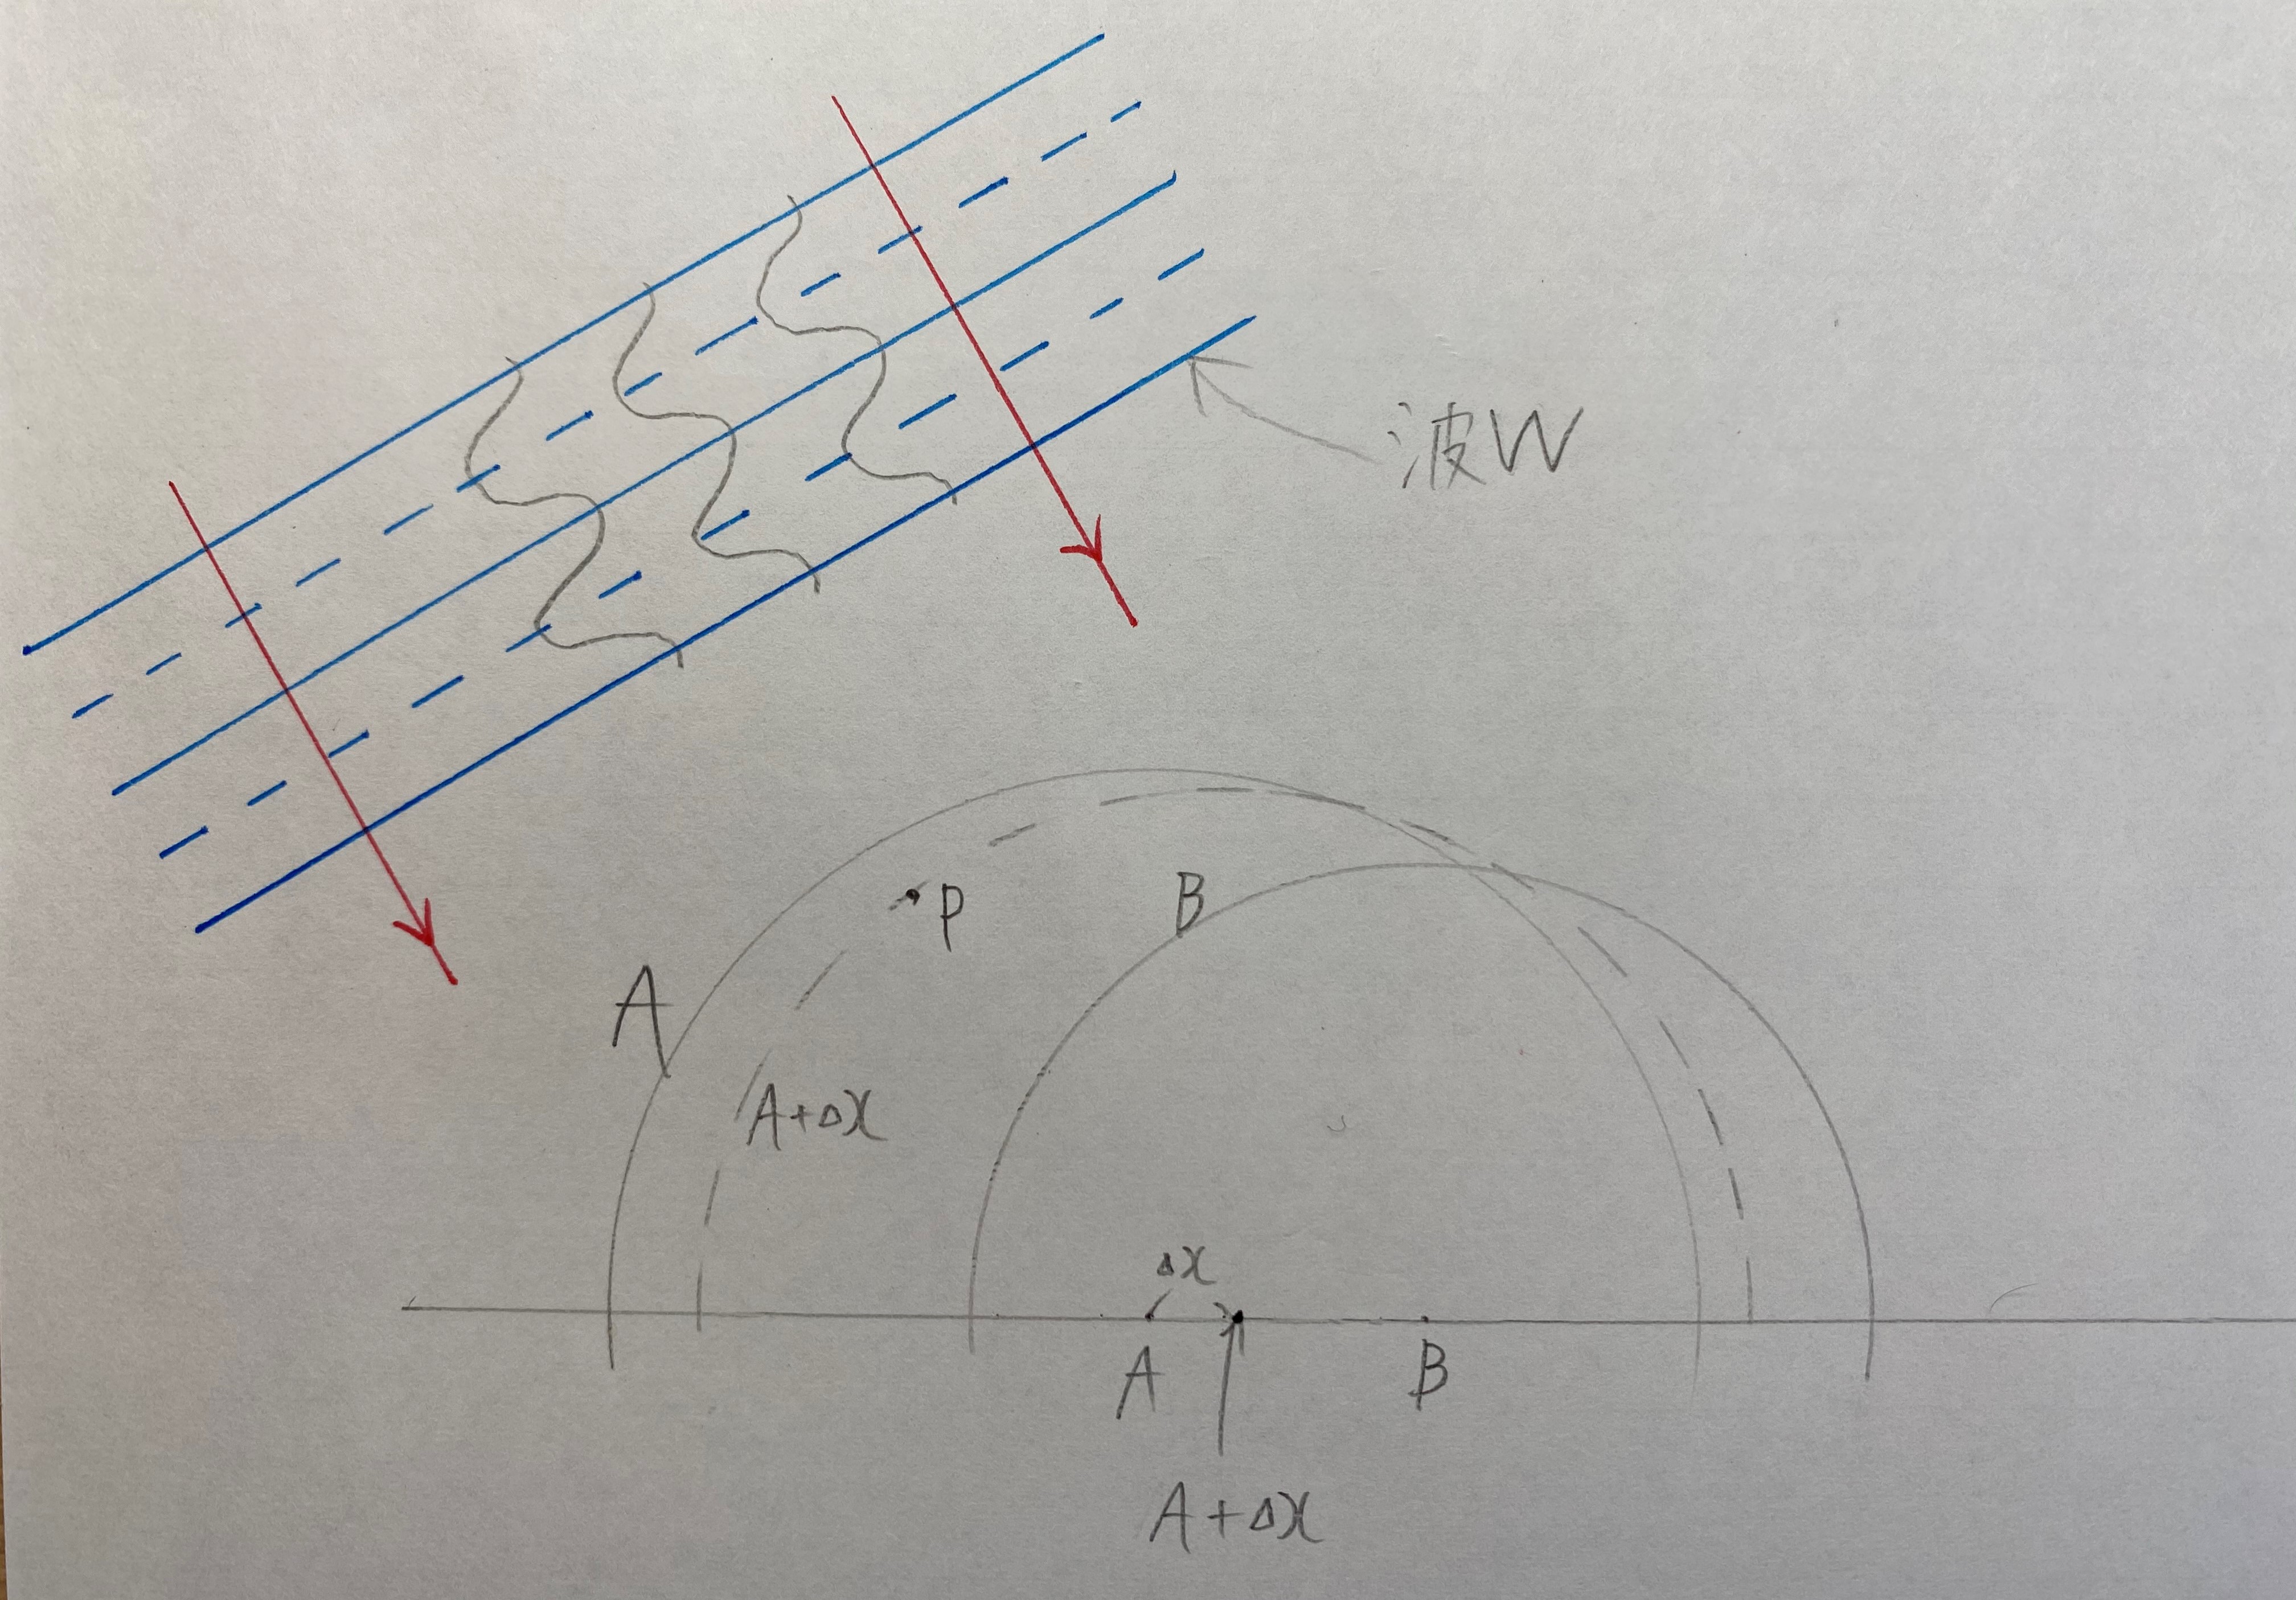 波W
P
B
A
A+Δx
Δx
A
B
A+Δx